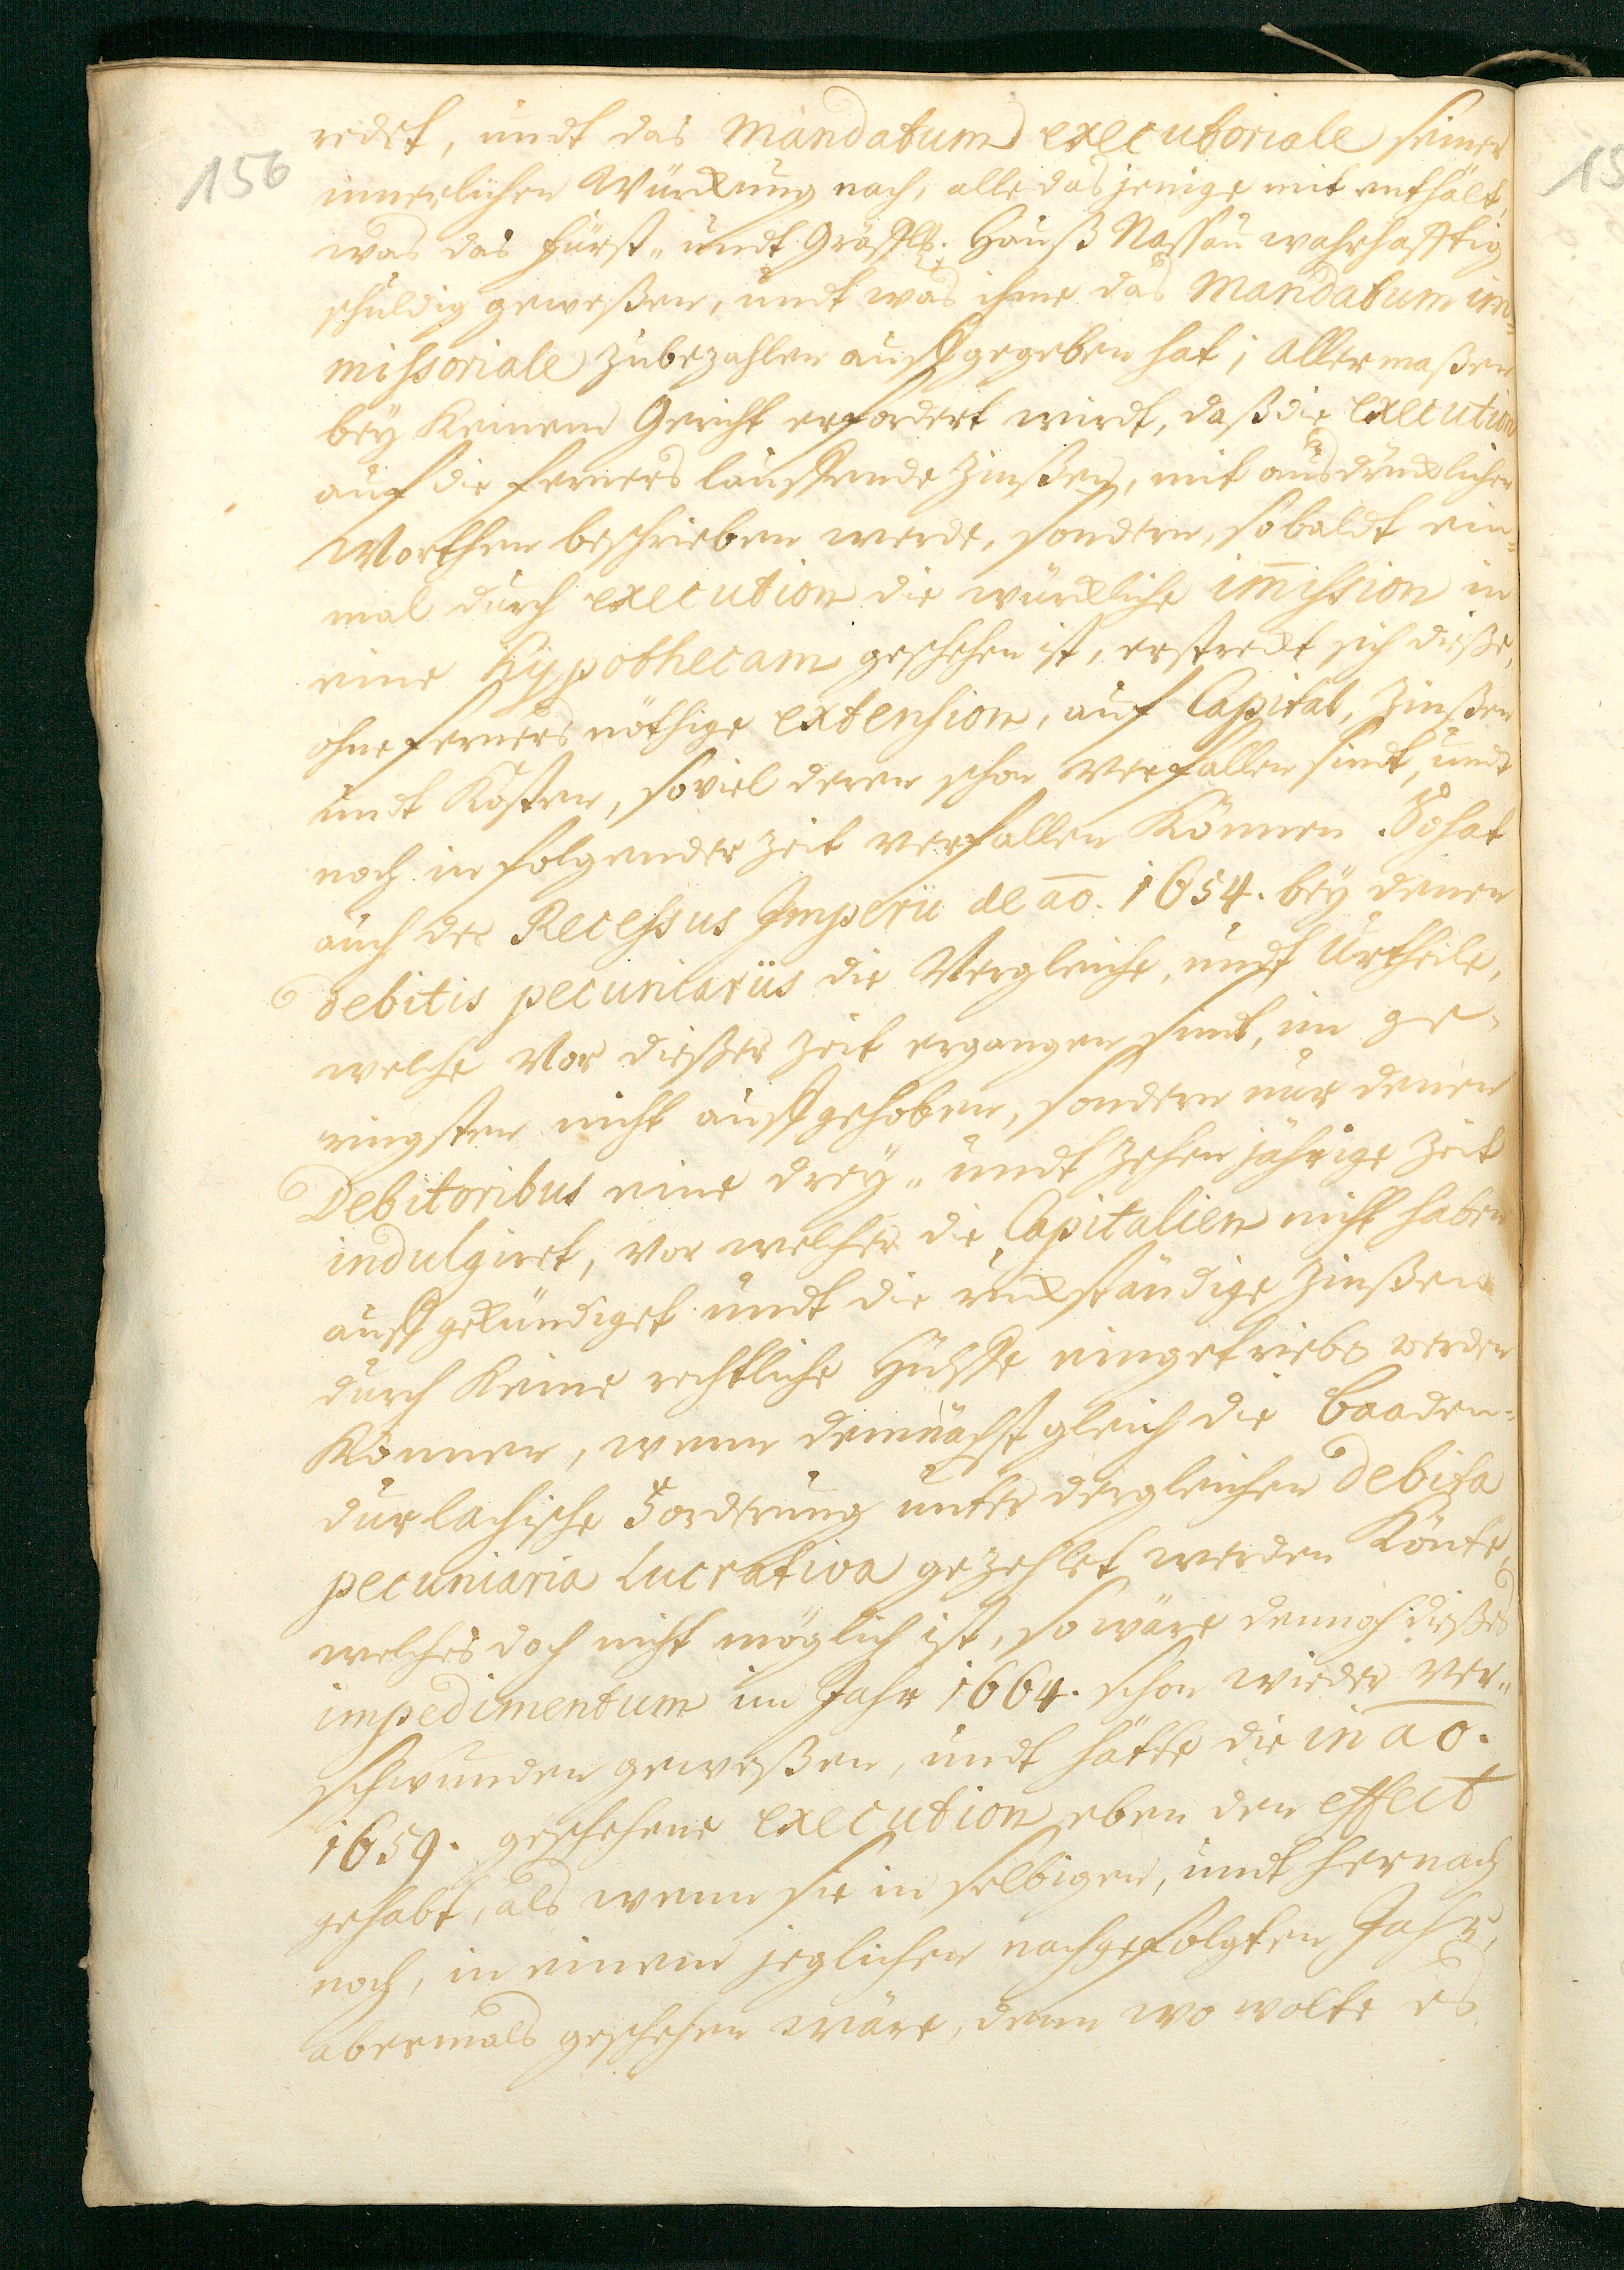 156
redet, undt das Mandatum executoriale seiner
innerlichen Würckung nach, alle das jenige mit enthält,
was das fürst- undt Gräffl. Hauß Nassau wahrhafftig
schuldig geweßen, undt was ihme das Mandatum im=
missoriale zubezahlen auffgegeben hat; allermaßen
bey Keinem Gericht erfordert wirdt, daß die execution
auf die ferners lauffende Zinßen, mit ausdrücklichen
Worthen beschrieben werde, sondern, sobaldt ein=
mal durch execution die würckliche im̄ission in
eine hÿpothecam geschehen ist, erstreckt sich dieße,
ohne ferners nöthige extension, auf Capital, Zinßen
undt Kosten, soviel deren schon verfallen sindt, undt
noch in folgender Zeit verfallen Können. So hat
auch der Recessus Imperii de ao. 1654. bey denen
debitis pecuniariis die Vergleiche, undt Urtheile,
welche vor dießer Zeit ergangen sindt, im ge-
ringsten nicht auffgehoben, sondern nur denen
Debitoribus eine drey- undt Zehen jährige Zeit
indulgiret, vor welcher die Capitalien nicht haben
auffgekündiget undt die rückständige Zinßen
durch Keine rechtliche Hülffe eingetrieben werden
Können, wenn demnächst gleich die Baaden=
durlachische Forderung unter dergleichen debita
pecuniaria lucrativa gezehlet werden Könte,
welches doch nicht möglich ist, so wäre dennoch dießes
impedimentum im Jahr 1664. schon wieder ver-
schwunden geweßen, undt hätte die in ao.
1659. geschehene execution eben den effect
gehabt, als wenn sie in selbigem, undt hernach
noch, in einem jeglichen nachgefolgten Jahr,
abermals geschehen wäre, denn wo wolte es
15